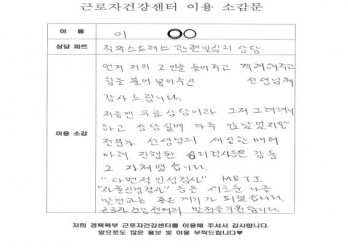 근로자건강센터 이용 소감문
이 름 이 ○○
상담 파트 직무스트레스 관련 심리 상담
먼저 저의 고민을 들어주고 격려해주고
힘을 불어 넣어주신 선생님께
감사드립니다.
처음엔 무료상담이라 그저 그러려니
하고 상담실에 마주 앉았었지만
전문가 선생님의 세심한 배려
아래 진행된 심리검사들은 감동
그 자체였습니다.
"다면적 인성검사" MBTI
등은 새로운 나를
발견하는 좋은 계기가 되었습니다.
근로자건강센터의 발전을 기원합니다.
이용 소감
저희 경북북부 근로자건강센터를 이용해 주셔서 감사합니다.
앞으로도 많은 홍보 및 이용 부탁드립니다♥